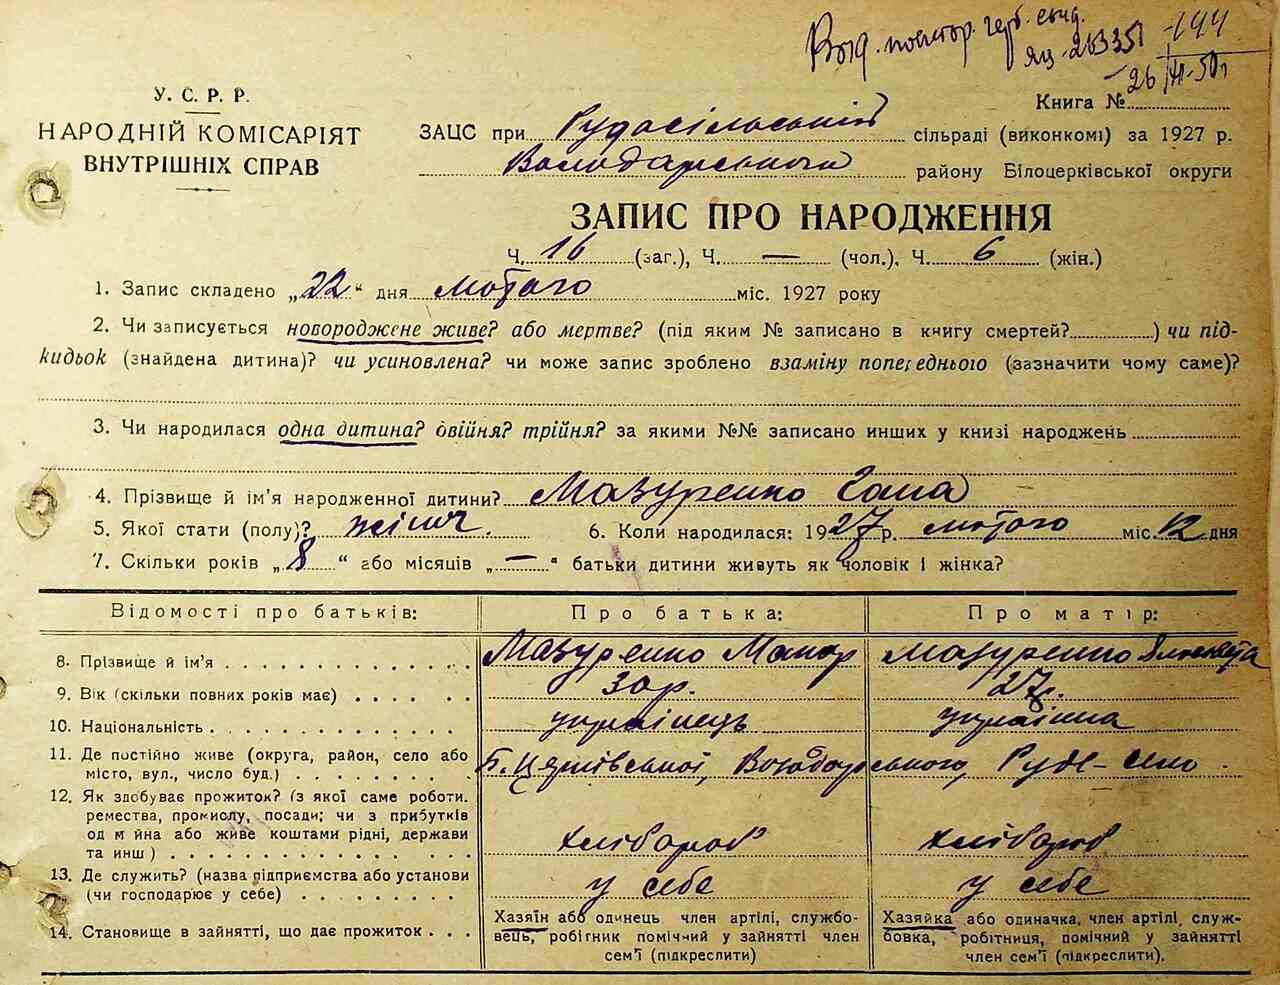 Вид. повтор. герб. свід.
ЯЦ-263351
-26/VI-50р
У. С. Р. Р.
НАРОДНІЙ КОМІСАРІЯТ
ВНУТРІШНІХ СПРАВ
Книга №
ЗАЦС при Рудосільській сільраді (виконкомі) за 1927 р.
Володарського району Білоцерківської округи
ЗАПИС ПРО НАРОДЖЕННЯ
Ч. 16 (заг.), Ч. — (чол.), Ч. 6 (жін.)
1. Запис складено „22“ дня лютого міс. 1927 року
2. Чи записується новороджене живе? або мертве? (під яким № записано в книгу смертей?) чи під-
кидьок (знайдена дитина)? чи усиновлена? чи може запис зроблено взаміну попереднього (зазначити чому саме)?
3. Чи народилася одна дитина? двійня? трійня? за якими №№ записано инших у книзі народжень
4. Прізвище й ім'я народженної дитини? Мазуренко Галя
5. Якої стати (полу)? жіноч. 6. Коли народилася: 1927 р. лютого міс. 12 дня
7. Скільки років „8“ або місяців „—“ батьки дитини живуть як чоловік і жінка?
Відомості про батьків: Про батька: Про матір:
8. Прізвище й ім'я Мазуренко Макар Мазуренко
9. Вік (скільки повних років має) 30р. 27р.
10. Національність українець українка
11. Де постійно живе (округа, район, село або
місто, вул., число буд.) Б. Церківської, Володарського, Руде-село.
12. Як здобуває прожиток? (з якої саме роботи.
ремества, промислу, посади; чи з прибутків
од м йна або живе коштами рідні, держави
та инш) хлібороб хлібороб
13. Де служить? (назва підприємства або установи
(чи господарює у себе) у себе у себе
14. Становище в зайнятті, що дає прожиток
Хазяїн або одинець член артілі, службо-
вець, робітник помічний у зайнятті член
сем'ї (підкреслити)
Хазяйка або одиначка, член артілі, служ-
бовка, робітниця, помічний у зайнятті
член сем'ї (підкреслити).